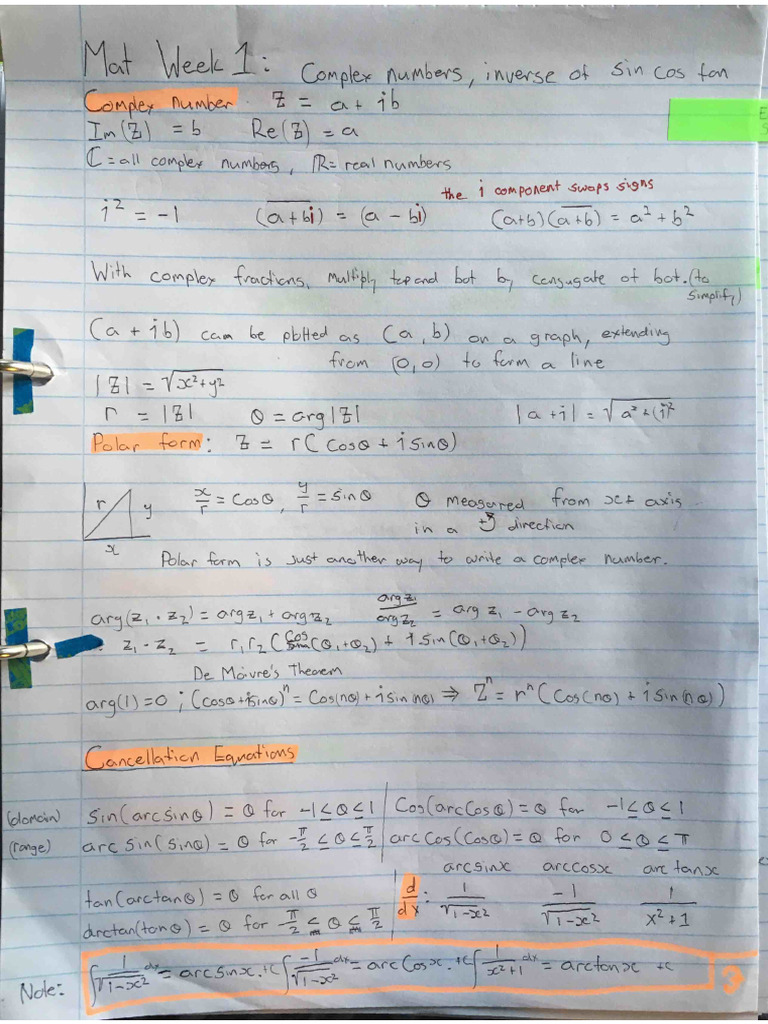 Mat Week 1: Complex numbers, inverse of sin cos tan
Complex number z = a + ib
Im(z) = b Re(z) = a
ℂ = all complex numbers, ℝ = real numbers
the i component swaps signs
i² = -1 (a + bi)‾ = (a - bi) (a+b)(a+b)‾ = a² + b²
With complex fractions, multiply top and bot by conjugate of bot. (to simplify)
(a + ib) can be plotted as (a, b) on a graph, extending
from (0,0) to form a line
|z| = √(x² + y²)
r = |z| θ = arg|z| |a + i| = √(a² + (i)²
Polar form: z = r(cosθ + i sinθ)
r y x
x/r = cosθ, y/r = sinθ θ measured from x+ axis
in a +↺ direction
Polar form is just another way to write a complex number.
arg(z₁ · z₂) = arg z₁ + arg z₂ arg z₁/arg z₂ = arg z₁ - arg z₂
z₁ · z₂ = r₁r₂(cos(θ₁+θ₂) + i sin(θ₁+θ₂))
De Moivre's Theorem
arg(1) = 0 ; (cosθ + i sinθ)ⁿ = cos(nθ) + i sin(nθ) ⇒ zⁿ = rⁿ(cos(nθ) + i sin(nθ))
Cancellation Equations
(domain) sin(arcsinθ) = θ for -1 ≤ θ ≤ 1 cos(arccosθ) = θ for -1 ≤ θ ≤ 1
(range) arcsin(sinθ) = θ for -π/2 ≤ θ ≤ π/2 arccos(cosθ) = θ for 0 ≤ θ ≤ π
arcsinx arccosx arctanx
tan(arctanθ) = θ for all θ d/dx: 1/√(1-x²) -1/√(1-x²) 1/(x²+1)
arctan(tanθ) = θ for -π/2 ≤ θ ≤ π/2
Note: ∫ 1/√(1-x²) dx = arcsinx + c ∫ -1/√(1-x²) dx = arccosx. + c ∫ 1/(x²+1) dx = arctanx + c